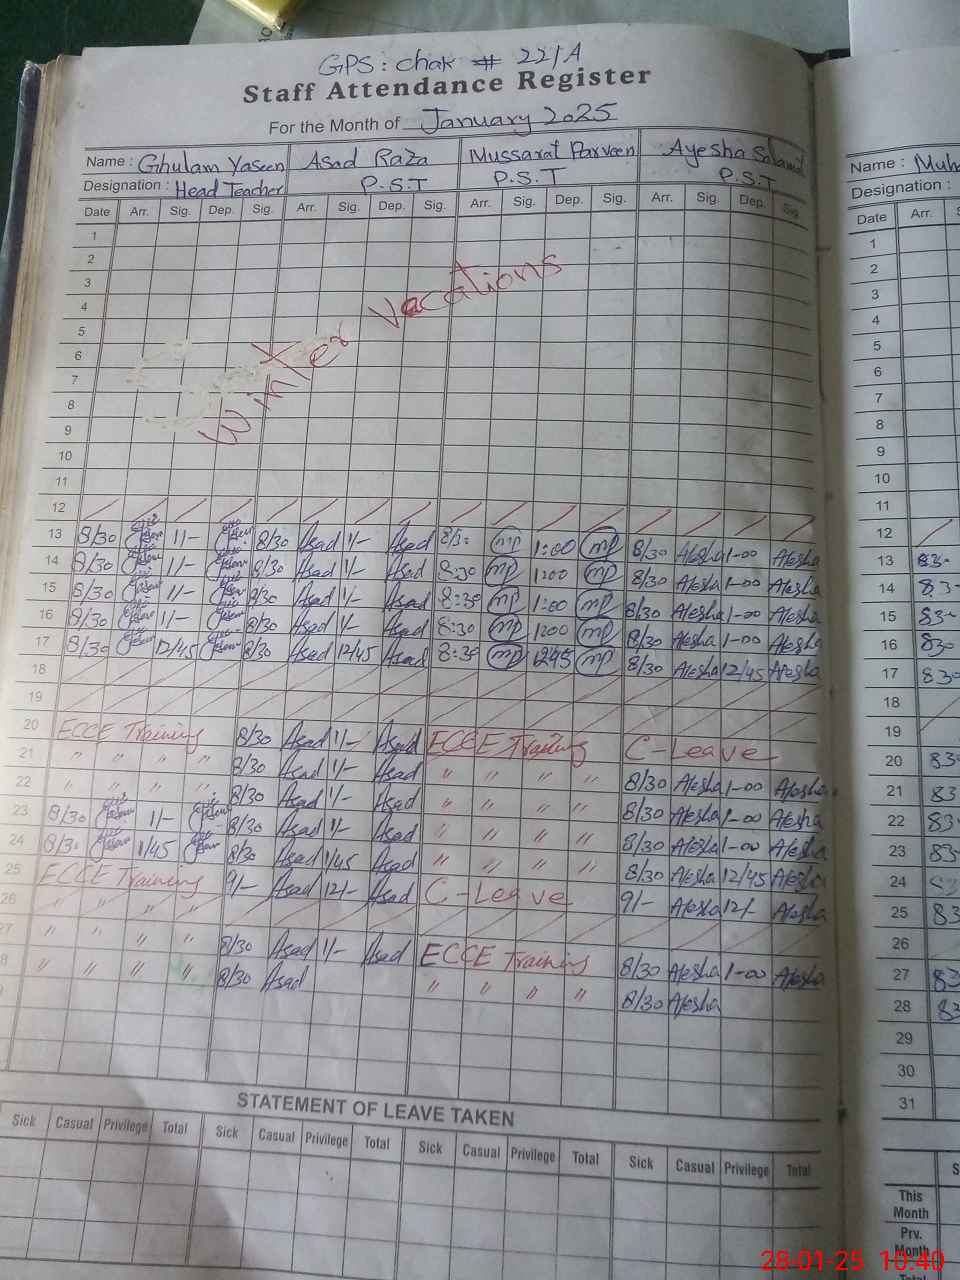 GPS: chak # 22/A
Staff Attendance Register
For the Month of January 2025
Name : Ghulam Yaseen Asad Raza Mussarat Parveen Ayesha Name :
Designation : Head Teacher P.S.T P.S.T P.S.T Designation :
Date Arr. Sig. Dep. Sig. Arr. Sig. Dep. Sig. Arr. Sig. Dep. Sig. Arr. Sig. Dep. Sig. Date Arr.
1 1
2 2
3 3
4 4
5 5
6 6
7 7
8 8
9 9
10 10
11 11
12 12
Winter vacations
13 8/30 1/- 8/30 Asad 1/- Asad 8/30 mp 1:00 mp 8/30 Ayesha 1-00 Ayesha 13 830
14 8/30 1/- 8/30 Asad 1/- Asad 8:30 mp 1:00 mp 8/30 Ayesha 1-00 Ayesha 14 830
15 8/30 1/- 8/30 Asad 1/- Asad 8:30 mp 1:00 mp 8/30 Ayesha 1-00 Ayesha 15 830
16 8/30 1/- 8/30 Asad 1/- Asad 8:30 mp 1:00 mp 8/30 Ayesha 1-00 Ayesha 16 830
17 8/30 12/45 8/30 Asad 12/45 Asad 8:30 mp 12:45 mp 8/30 Ayesha 12/45 Ayesha 17 830
18 18
19 19
20 ECCE Training 8/30 Asad 1/- Asad ECCE Training C-Leave 20
21 " " " " 8/30 Asad 1/- Asad " " " " 8/30 Ayesha 1-00 Ayesha 21
22 " " " " 8/30 Asad 1/- Asad " " " " 8/30 Ayesha 1-00 Ayesha 22
23 8/30 1/- 8/30 Asad 1/- Asad " " " " 8/30 Ayesha 1-00 Ayesha 23
24 8/30 1/45 8/30 Asad 1/45 Asad " " " " 8/30 Ayesha 12/45 Ayesha 24
25 ECCE Training 9/- Asad 12/- Asad C-Leave 9/- Ayesha 12/- Ayesha 25
26 " " " 26
" " " " 8/30 Asad 1/- Asad ECCE Training 8/30 Ayesha 1-00 Ayesha 27
" " " " 8/30 Asad " " " " 8/30 Ayesha 28
29
30
31
STATEMENT OF LEAVE TAKEN
Sick Casual Privilege Total Sick Casual Privilege Total Sick Casual Privilege Total Sick Casual Privilege Total
This Month
Prv. Month
Total
28-01-25 10:40